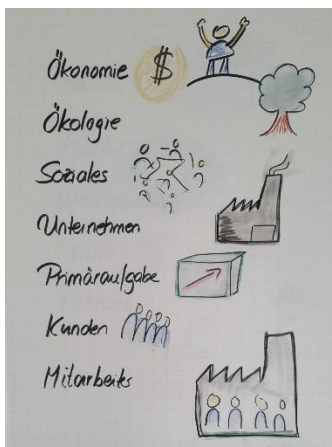 Ökonomie $
Ökologie
Soziales
Unternehmen
Primäraufgabe
Kunden
Mitarbeiter